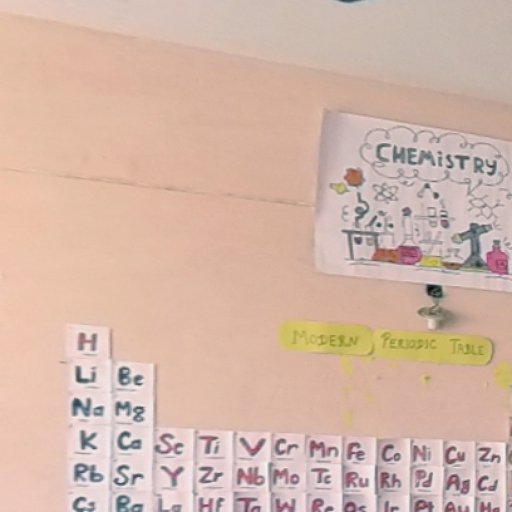 CHEMiSTRY
MODERN PERIODIC TABLE
H
Li Be
Na Mg
K Ca Sc Ti V Cr Mn Fe Co Ni Cu Zn
Rb Sr Y Zr Nb Mo Tc Ru Rh Pd Ag Cd
Cs Ba La Hf Ta W Re Os Ir Pt Au Hg